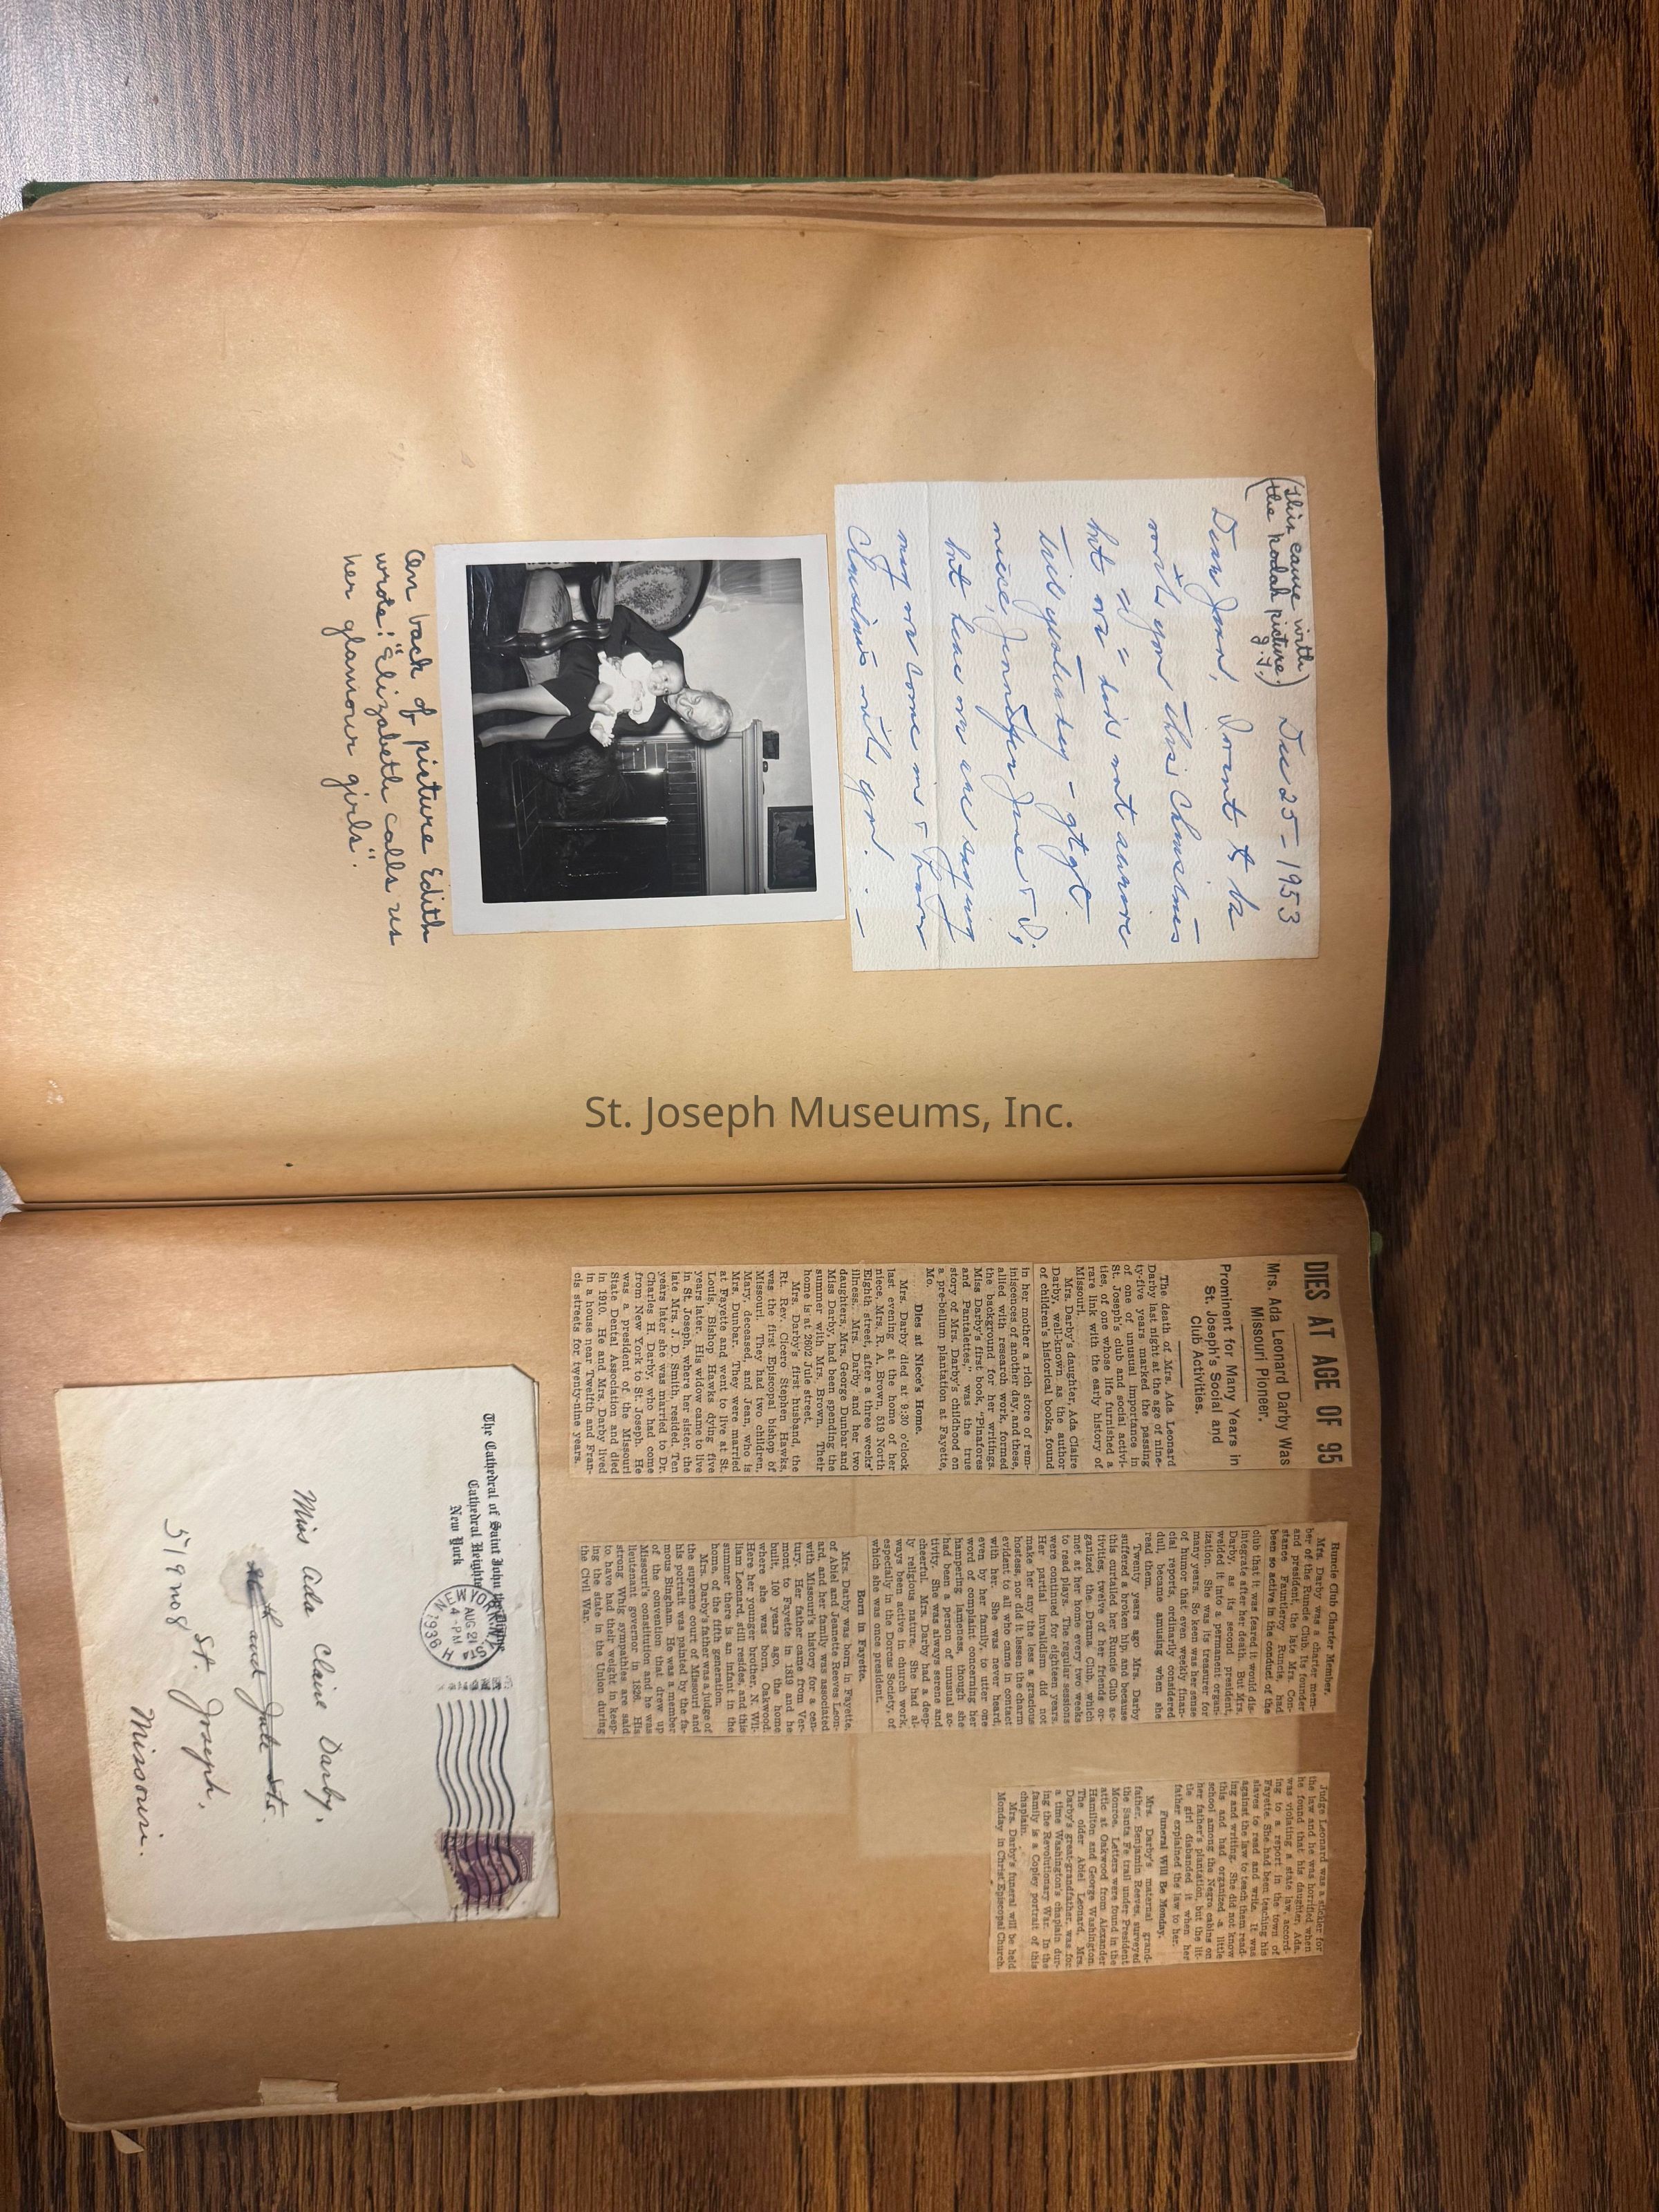 (This came with
the kodak picture.
g.g.)
Dec 25 - 1953
Dear Jean, I want to be
with you this Christmas
but we did not survive
till yesterday -
niece, Jennifer Jane &
but here we are
may we come in &
Christmas with you.
On back of picture Edith
wrote: "Elizabeth calls us
her glamour girls".
St. Joseph Museums, Inc.
DIES AT AGE OF 95
Mrs. Ada Leonard Darby Was
Missouri Pioneer.
Prominent for Many Years in
St. Joseph's Social and
Club Activities.
The death of Mrs. Ada Leonard
Darby last night at the age of nine-
ty-five years marked the passing
of one of unusual importance in
St. Joseph's club and social activi-
ties, of one whose life furnished a
rare link with the early history of
Missouri.
Mrs. Darby's daughter, Ada Claire
Darby, well-known as the author
of children's historical books, found
in her mother a rich store of rem-
iniscences of another day, and these,
allied with research work, formed
the background for her writings.
Miss Darby's first book, "Pinafores
and Pantalettes," was the true
story of Mrs. Darby's childhood on
a pre-bellum plantation at Fayette,
Mo.
Dies at Niece's Home.
Mrs. Darby died at 9:30 o'clock
last evening at the home of her
niece, Mrs. R. A. Brown, 519 North
Eighth street, after a three weeks'
illness. Mrs. Darby and her two
daughters, Mrs. George Dunbar and
Miss Darby, had been spending the
summer with Mrs. Brown. Their
home is at 2602 Jule street.
Mrs. Darby's first husband, the
Rt. Rev. Cicero Stephen Hawks,
was the first Episcopal bishop of
Missouri. They had two children,
Mary, deceased, and Jean, who is
Mrs. Dunbar. They were married
at Fayette and went to live at St.
Louis, Bishop Hawks dying five
years later. His widow came to live
in St. Joseph, where her sister, the
late Mrs. J. D. Smith, resided. Ten
years later she was married to Dr.
Charles H. Darby, who had come
from New York to St. Joseph. He
was a president of the Missouri
State Dental Association and died
in 1910. He and Mrs. Darby lived
in a house near Twelfth and Fran-
cis streets for twenty-nine years.
Runcie Club Charter Member.
Mrs. Darby was a charter mem-
ber of the Runcie Club. Its founder
and president, the late Mrs. Con-
stance Fauntleroy Runcie, had
been so active in the conduct of the
club that it was feared it would dis-
integrate after her death. But Mrs.
Darby, as its second president,
welded it into a permanent organ-
ization. She was its treasurer for
many years. So keen was her sense
of humor that even weekly finan-
cial reports, ordinarily considered
dull, became amusing when she
read them.
Twenty years ago Mrs. Darby
suffered a broken hip, and because
this curtailed her Runcie Club ac-
tivities, twelve of her friends or-
ganized the Drama Club which
met at her home every two weeks
to read plays. The regular sessions
were continued for eighteen years.
Her partial invalidism did not
make her any the less a gracious
hostess, nor did it lessen the charm
evident to all who came in contact
with her. She was never heard,
even by her family, to utter one
word of complaint concerning her
hampering lameness, though she
had been a person of unusual ac-
tivity. She was always serene and
cheerful. Mrs. Darby had a deep-
ly religious nature. She had al-
ways been active in church work,
especially in the Dorcas Society, of
which she was once president.
Born in Fayette.
Mrs. Darby was born in Fayette,
of Abiel and Jeanette Reeves Leon-
ard, and her family was associated
with Missouri's history for a cen-
tury. Her father came from Ver-
mont to Fayette in 1819 and he
built, 100 years ago, the home
where she was born, Oakwood.
Here her younger brother, N. Wil-
liam Leonard, still resides, and this
summer there is an infant in the
home of the fifth generation.
Mrs. Darby's father was a judge of
the supreme court of Missouri and
his portrait was painted by the fa-
mous Bingham. He was a member
of the convention that drew up
Missouri's constitution and he was
lieutenant governor in 1826. His
strong Whig sympathies are said
to have had their weight in keep-
ing the state in the Union during
the Civil War.
Judge Leonard was a stickler for
the law and he was horrified when
he found that his daughter, Ada,
was violating a state law, accord-
ing to a report in the town of
Fayette. She had been teaching his
slaves to read and write. It was
against the law to teach them read-
ing and writing. She did not know
this and had organized a little
school among the Negro cabins on
her father's plantation, but the lit-
tle girl disbanded it when her
father explained the law to her.
Funeral Will Be Monday.
Mrs. Darby's maternal grand-
father, Benjamin Reeves, surveyed
the Santa Fe trail under President
Monroe. Letters were found in the
attic at Oakwood from Alexander
Hamilton and George Washington.
The older Abiel Leonard, Mrs.
Darby's great-grandfather, was for
a time Washington's chaplain dur-
ing the Revolutionary War. In the
family is a Copley portrait of this
chaplain.
Mrs. Darby's funeral will be held
Monday in Christ Episcopal Church.
The Cathedral of Saint John the Divine
Cathedral Heights
New York
NEW YORK, N.Y.
AUG 21
4 - PM
1938
STA H
Miss Ada Claire Darby,
and Jule Sts.
519 No 8
St. Joseph,
Missouri.